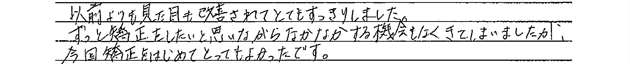 以前よりも見た目も改善されてとてもすっきりしました。
ずっと矯正をしたいと思いながらなかなかする機会もなくきてしまいましたが、
今回矯正をはじめてとってもよかったです。